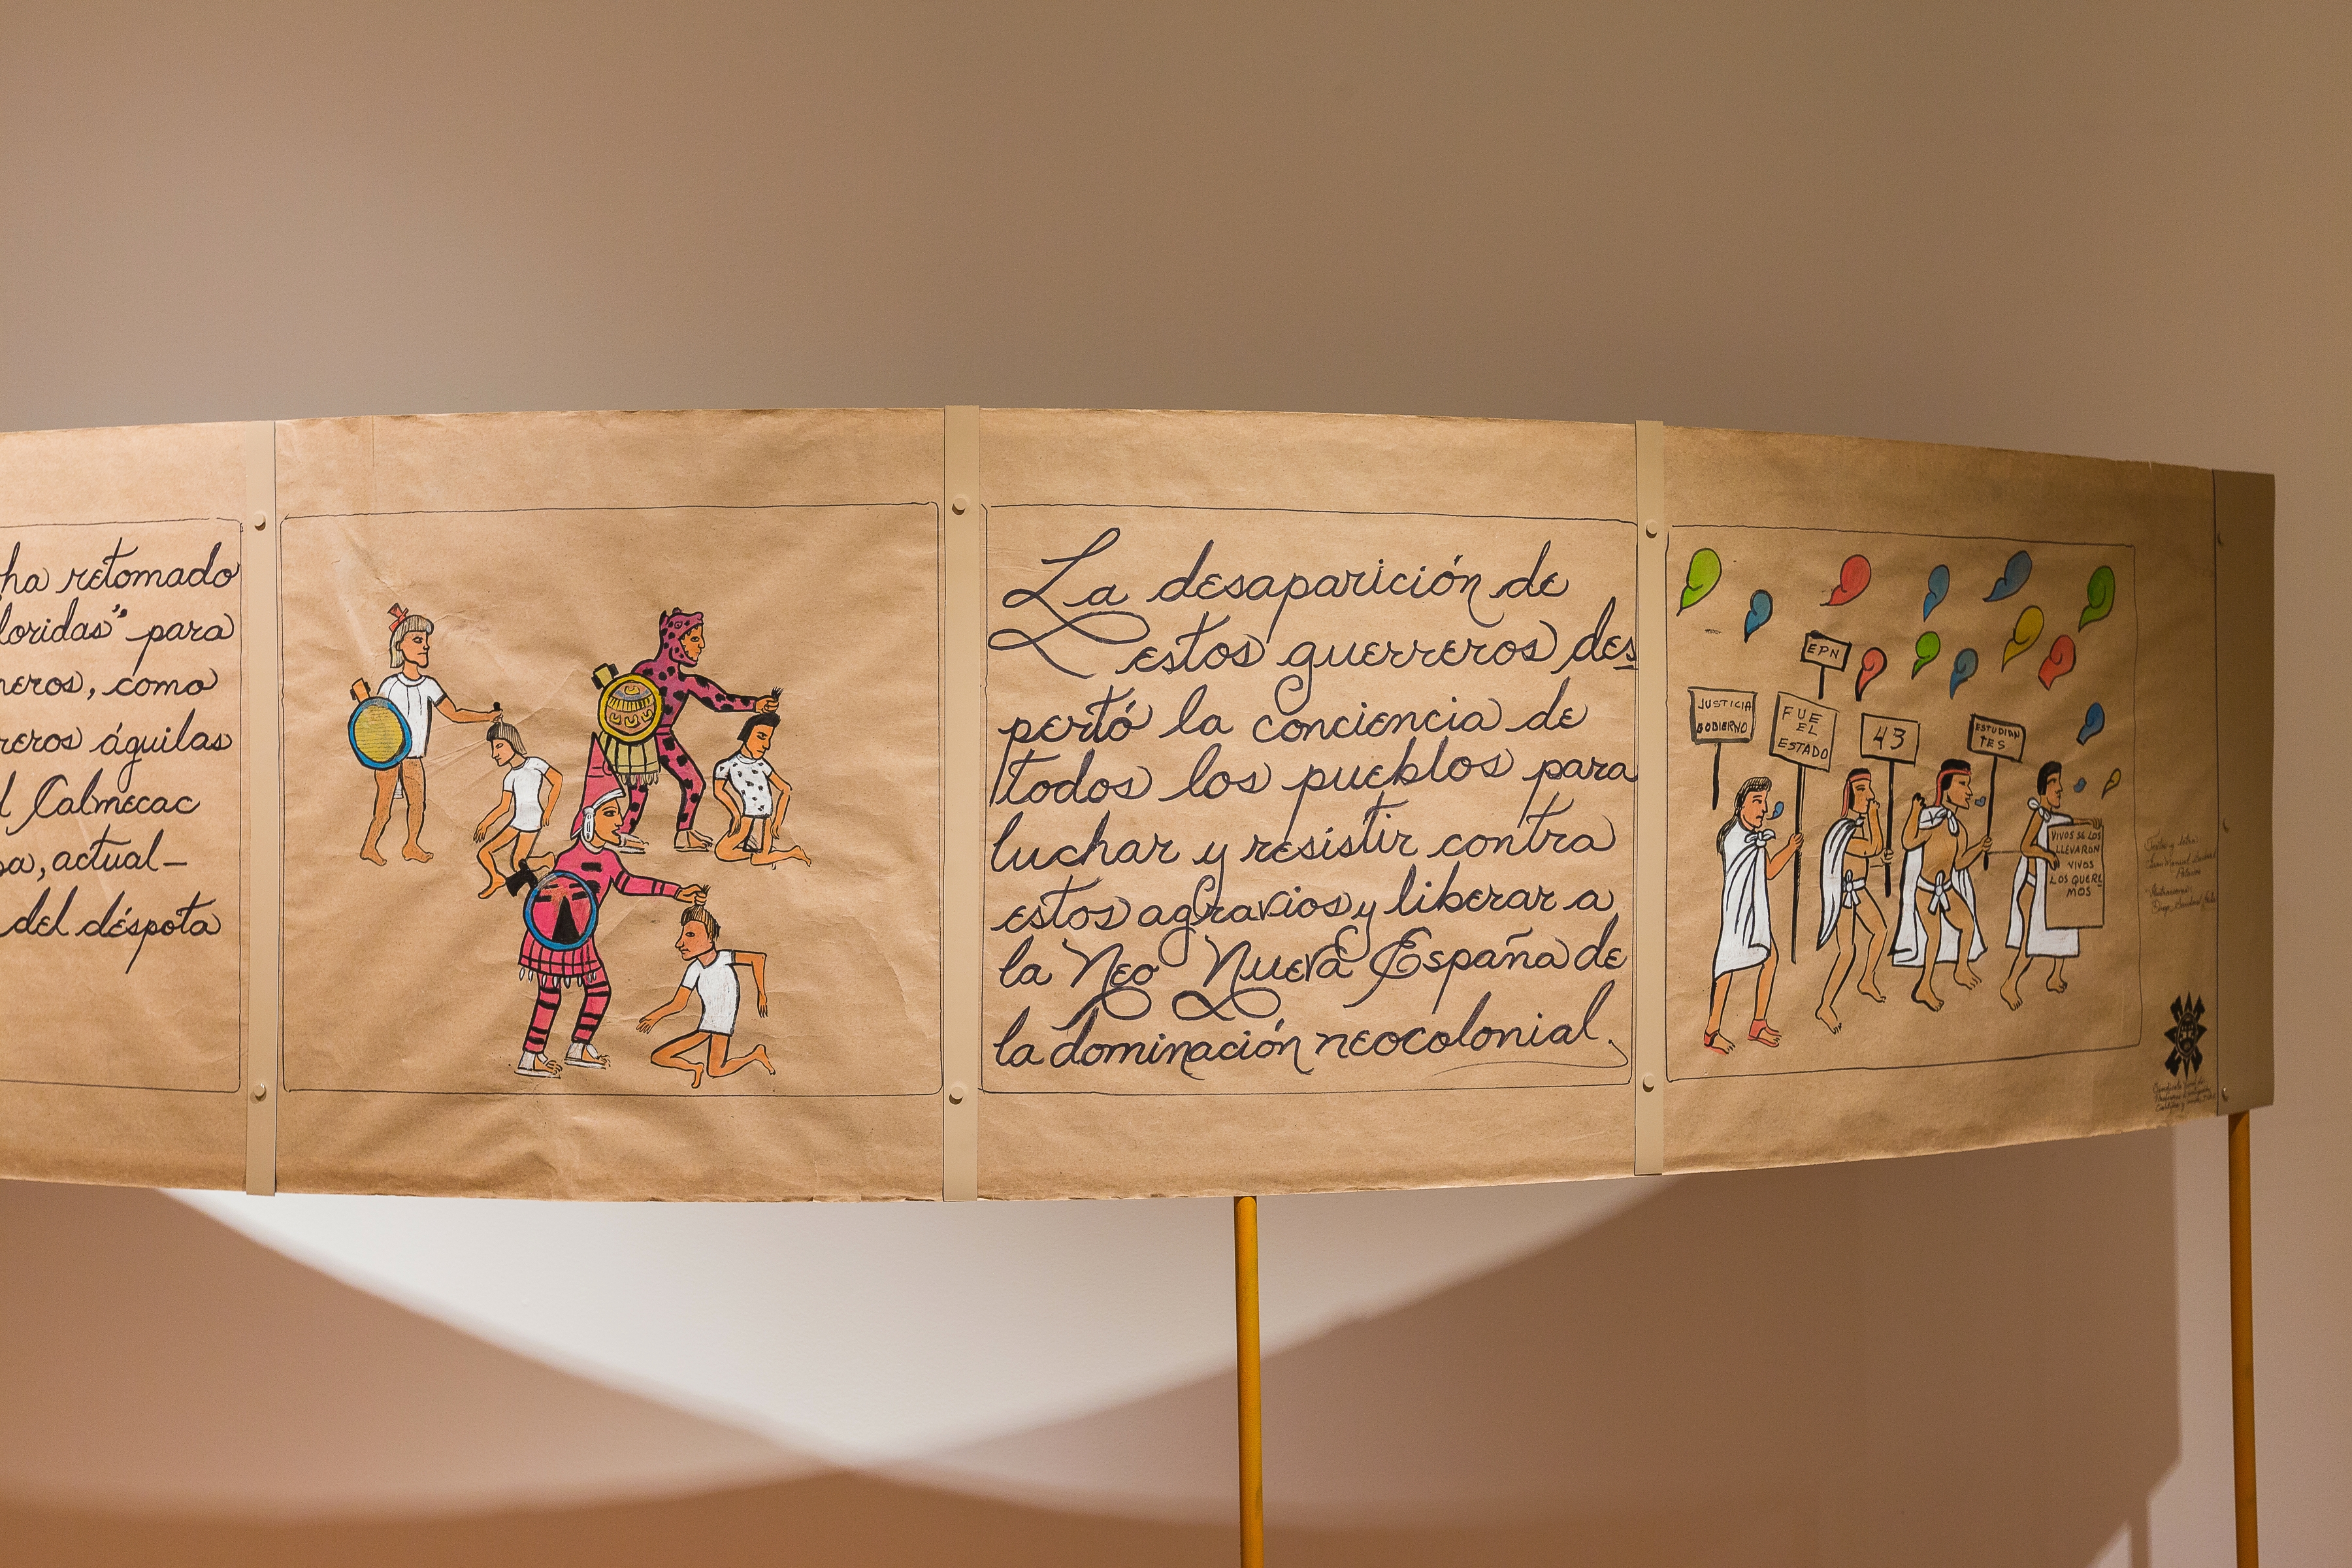 ha retomado
loridas" para
neros, como
reros águilas
l Calmecac
sa, actual-
del déspota
La desaparición de
estos guerreros des
pertó la conciencia de
todos los pueblos para
luchar y resistir contra
estos agravios y liberar a
la Neo Nueva España de
la dominación neocolonial.
EPN
JUSTICIA
GOBIERNO
FUE
EL
ESTADO
43
ESTUDIAN
TES
VIVOS SE LOS
LLEVARON
VIVOS
LOS QUERE
MOS
Texto y letra: